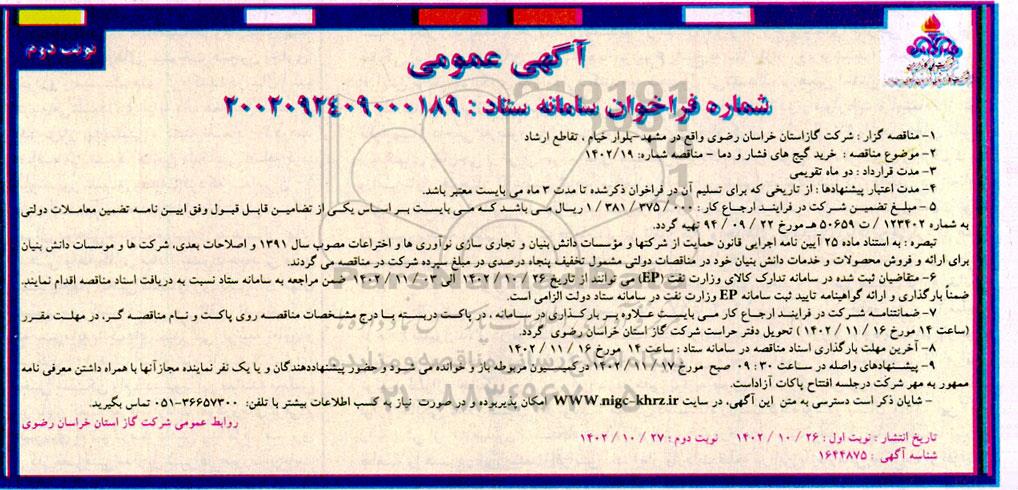 نوبت دوم
آگهی عمومی
شماره فراخوان سامانه ستاد : ۲۰۰۲۰۹۲۴۰۹۰۰۰۱۸۹
۱- مناقصه گزار : شرکت گازاستان خراسان رضوی واقع در مشهد-بلوار خیام ، تقاطع ارشاد
۲- موضوع مناقصه : خرید گیج های فشار و دما - مناقصه شماره: ۱۴۰۲/۱۹
۳- مدت قرارداد : دو ماه تقویمی
۴- مدت اعتبار پیشنهادها : از تاریخی که برای تسلیم آن در فراخوان ذکرشده تا مدت ۳ ماه می بایست معتبر باشد.
۵ - مبلغ تضمین شرکت در فرایند ارجاع کار : ۱ / ۳۸۱ / ۳۷۵ / ۰۰۰ ریال می باشد که می بایست بر اساس یکی از تضامین قابل قبول وفق ایین نامه تضمین معاملات دولتی
به شماره ۱۲۳۴۰۲ / ت ۵۰۶۵۹ هـ مورخ ۲۲ / ۰۹ / ۹۴ تهیه گردد.
تبصره : به استناد ماده ۲۵ آیین نامه اجرایی قانون حمایت از شرکتها و مؤسسات دانش بنیان و تجاری سازی نوآوری ها و اختراعات مصوب سال ۱۳۹۱ و اصلاحات بعدی، شرکت ها و موسسات دانش بنیان
برای ارائه و فروش محصولات و خدمات دانش بنیان خود در مناقصات دولتی مشمول تخفیف پنجاه درصدی در مبلغ سپرده شرکت در مناقصه می گردند.
۶- متقاضیان ثبت شده در سامانه تدارک کالای وزارت نفت (EP) می توانند از تاریخ ۲۶ / ۱۰ / ۱۴۰۲ الی ۰۳ / ۱۱ / ۱۴۰۲ ضمن مراجعه به سامانه ستاد نسبت به دریافت اسناد مناقصه اقدام نمایند.
ضمناً بارگذاری و ارائه گواهینامه تایید ثبت سامانه EP وزارت نفت در سامانه ستاد دولت الزامی است.
۷- ضمانتنامه شرکت در فرایند ارجاع کار می بایست علاوه بر بارگذاری در سامانه ، در پاکت دربسته با درج مشخصات مناقصه روی پاکت و نام مناقصه گر، در مهلت مقرر
(ساعت ۱۴ مورخ ۱۶ / ۱۱ / ۱۴۰۲ ) تحویل دفتر حراست شرکت گاز استان خراسان رضوی گردد.
۸- آخرین مهلت بارگذاری اسناد مناقصه در سامانه ستاد : ساعت ۱۴ مورخ ۱۶ / ۱۱ / ۱۴۰۲
۹ - پیشنهادهای واصله در ساعت ۳۰ : ۰۹ صبح مورخ ۱۷ / ۱۱ / ۱۴۰۲ درکمیسیون مربوطه باز و خوانده می شود و حضور پیشنهاددهندگان و یا یک نفر نماینده مجازآنها با همراه داشتن معرفی نامه
ممهور به مهر شرکت درجلسه افتتاح پاکات آزاداست.
- شایان ذکر است دسترسی به متن این آگهی، در سایت WWW.nigc-khrz.ir امکان پذیربوده و در صورت نیاز به کسب اطلاعات بیشتر با تلفن: ۳۶۶۵۷۳۰۰-۰۵۱ تماس بگیرید.
روابط عمومی شرکت گاز استان خراسان رضوی
تاریخ انتشار : نوبت اول : ۲۶ / ۱۰ / ۱۴۰۲ نوبت دوم : ۲۷ / ۱۰ / ۱۴۰۲
شناسه آگهی : ۱۶۴۴۸۷۵
ParsNamadData
پایگاه اطلاع رسانی مناقصه و مزایده
۰۲۱-۸۸۳۴۹۶۷۰-۵